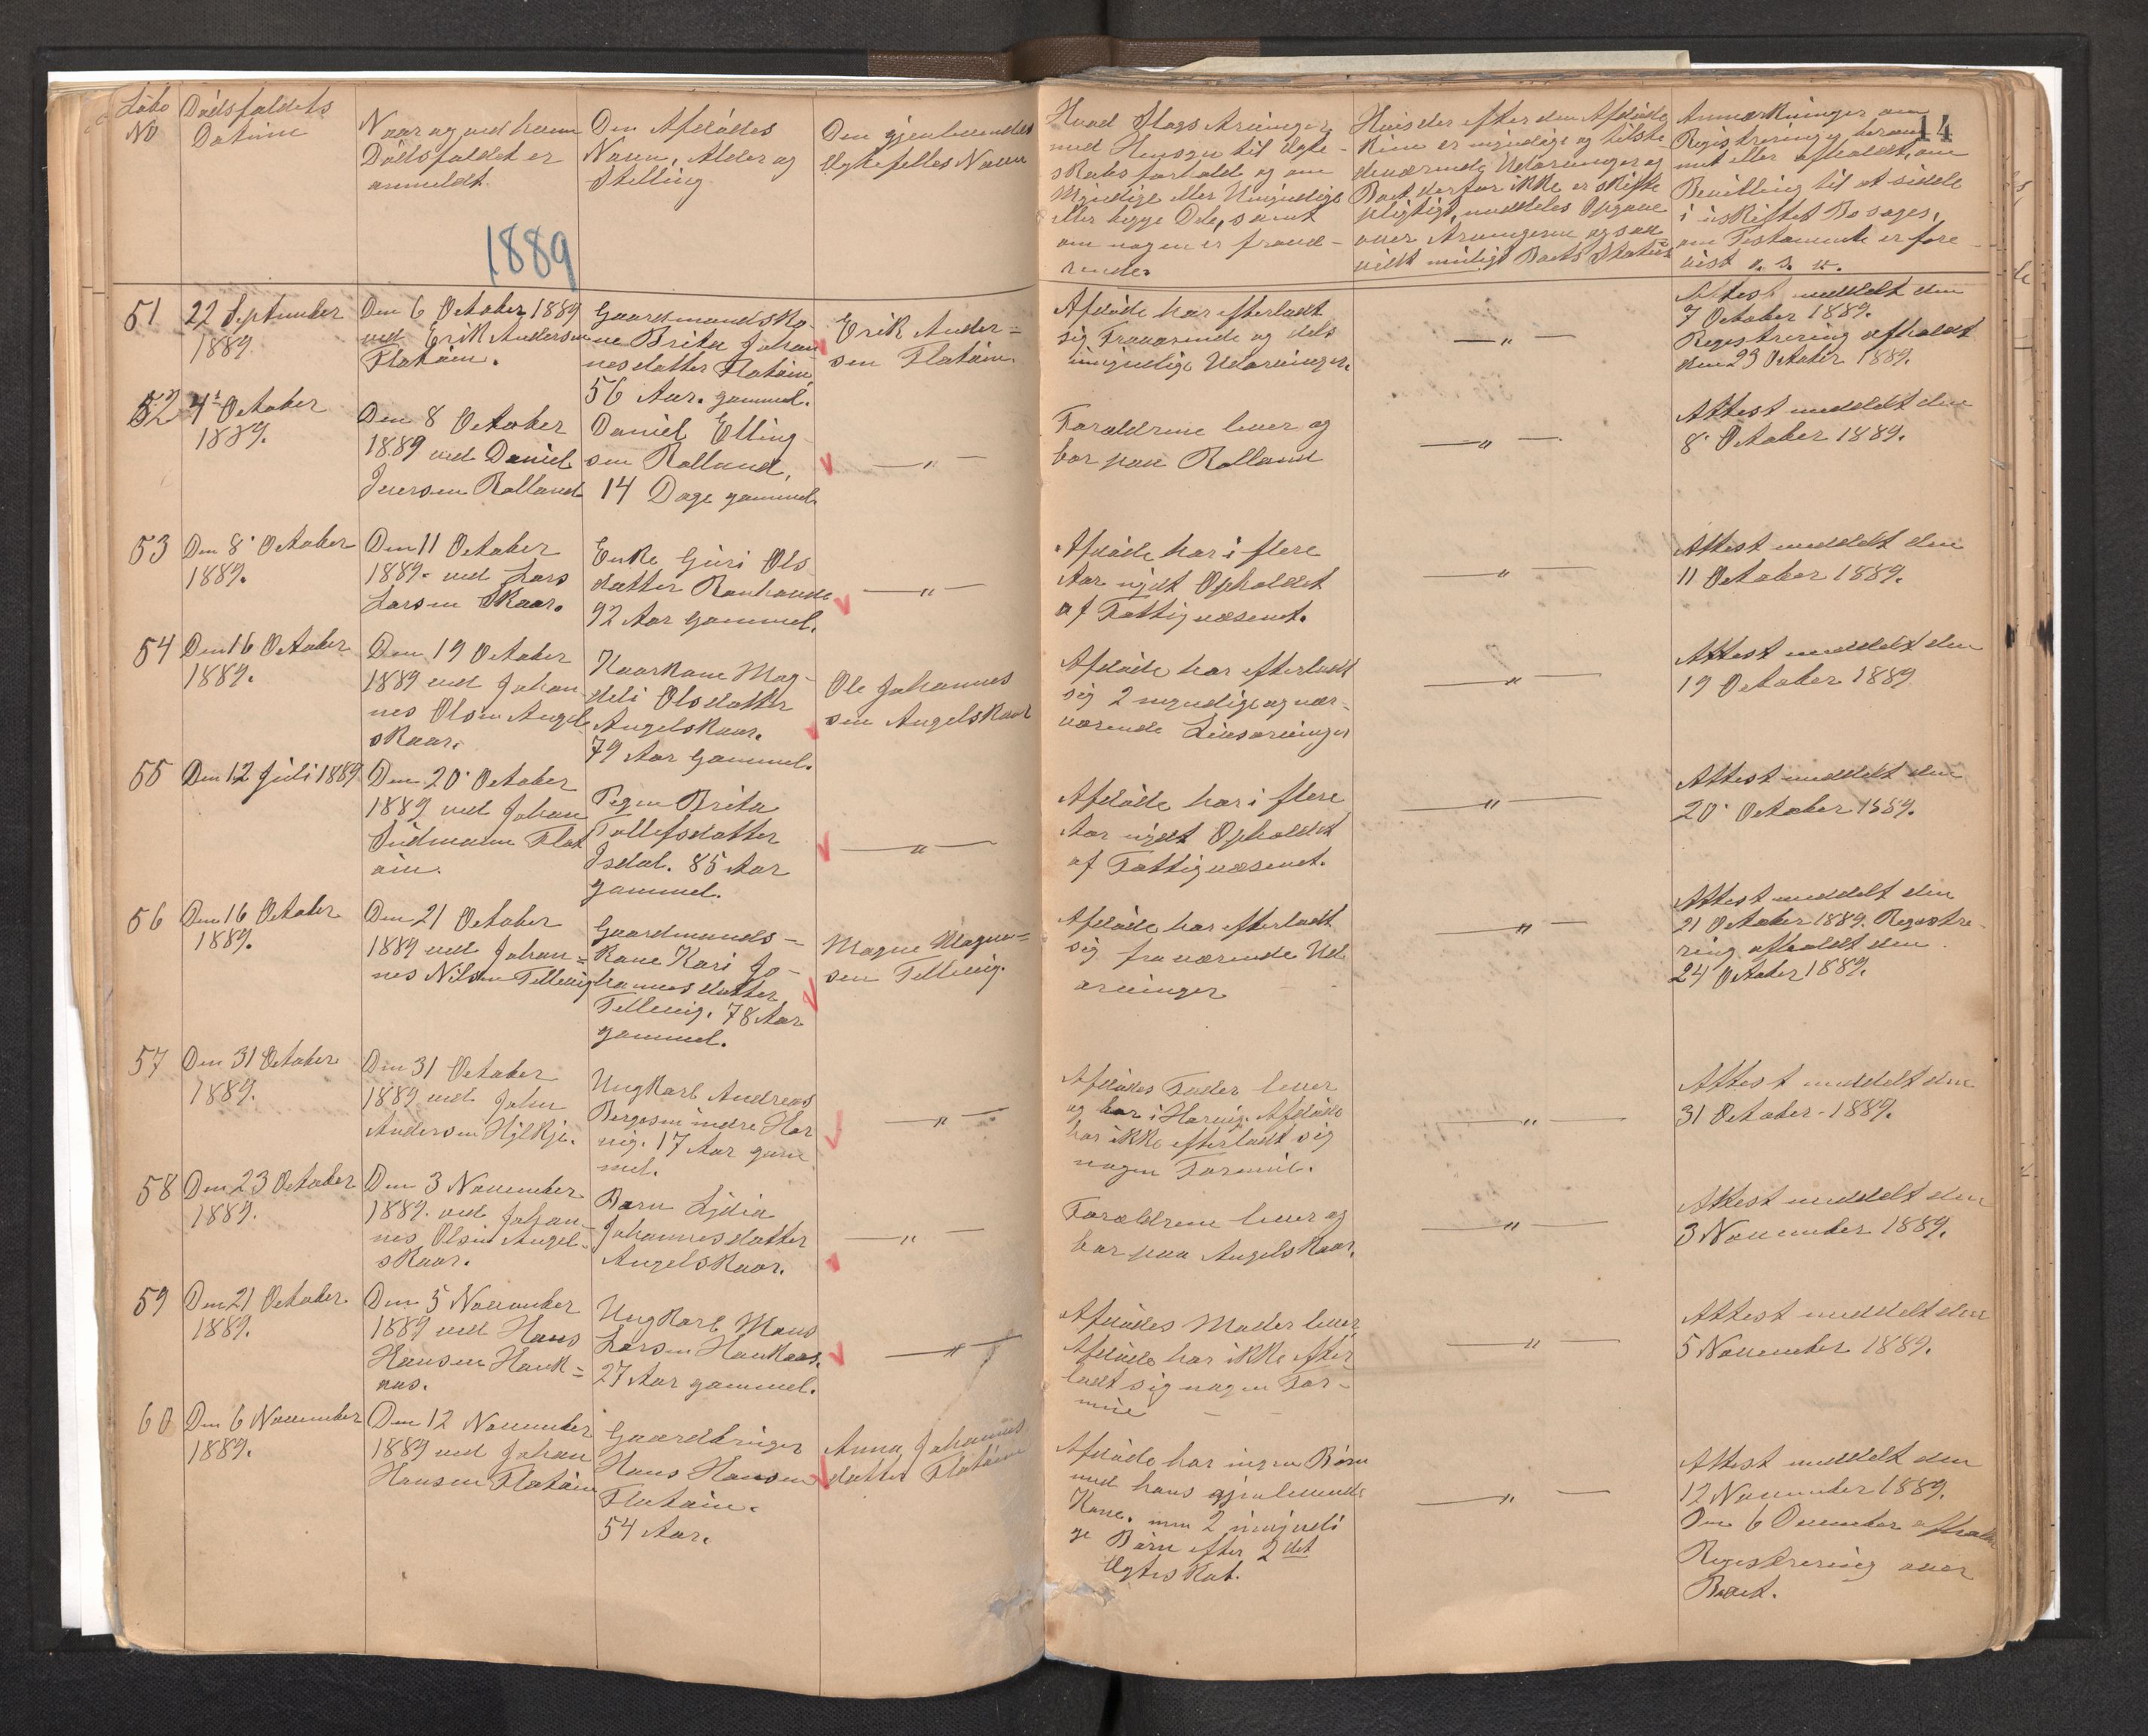 Löbe
No
Dødsfaldets
Datum
Naar og ved hvem
Dødsfaldet er
anmeldt.
Den Afdødes
Navn, Alder og
Stilling
Den gjenlevendes
Ægtefelles Navn
1889
Hvad Slags Arvinger
med Hensyn til Ægte-
skabsforhold og om
Myndige eller Umyndige
eller begge Dele, samt
om nogen er fravæ-
rende.
Hvis der efter den Afdøde
Kun er myndige og tilste-
deværende Udarvinger og
Boet derfor ikke er skifte
pligtigt, meddeles Opgave
over Arvingerne og saa
vidt muligt Boets Status
Anmærkninger om
Registrering er beram
met eller afholdt, om
Bevilling til at sidde
i uskiftet Bo søges,
om Testamente er fore
vist o. s. v.
14
51
22 September
1889
Den 6 October 1889
ved Erik Andersen
Flatøen.
Gaardmandsko-
ne Brita Johan
nesdatter Flatøen
56 Aar. gammel.
Erik Ander=
sen Flatøen.
Afdøde har efterladt
sig Fraværende og dels
umyndige Udarvinger.
— " —
Attest meddelt den
7 October 1889.
Registrering afholdt
den 23 October 1889.
52
4 October
1889.
Den 8 October
1889 ved Daniel
Iversen Rolland
Daniel Elling
sen Rolland,
14 Dage gammel
— " —
Forældrene lever og
bor paa Rolland
— " —
Attest meddelt den
8 October 1889.
53
Den 8 October
1889.
Den 11 October
1889. ved Lars
Larsen Skaar.
Enke Guri Ols
datter Ronhovde
92 Aar gammel.
— " —
Afdøde har i flere
Aar nydt Opholdet
af Fattigvæsenet.
— " —
Attest meddelt den
11 October 1889.
54
Den 16 October
1889.
Den 19 October
1889 ved Johan
nes Olsen Angel
skaar.
Kaarkone Mag-
deli Olsdatter
Angelskaar.
79 Aar gammel.
Ole Johannes
sen Angelskaar
Afdøde har efterladt
sig 2 myndige og nær-
værende Livsarvinger
— " —
Attest meddelt den
19 October 1889
55
Den 12 Juli 1889
Den 20 October
1889 ved Johan
Sudmann Flat
øen.
Pigen Brita
Tollefsdatter
Isdal. 85 Aar
gammel.
— " —
Afdøde har i flere
Aar nydt Opholdet
af Fattigvæsenet.
— " —
Attest meddelt den
20 October 1889.
56
Den 16 October
1889.
Den 21 October
1889 ved Johan=
nes Nilsen Tellevig
Gaardmands-
kone Kari Jo-
hannesdatter
Tellevig. 78 Aar
gammel.
Magne Magne=
sen Tellevig.
Afdøde har efterladt
sig fraværende Ud
arvinger
— " —
Attest meddelt den
21 October 1889. Registre-
ring afholdt den
24 October 1889.
57
Den 31 October
1889.
Den 31 October
1889 ved John
Andersen Hylkje.
Ungkarl Andreas
Bergesen indre Hor
vig. 17 Aar gam
mel.
— " —
Afdødes Fader lever
og bor i Horvig. Afdøde
har ikke efterladt sig
nogen Formue.
— " —
Attest meddelt den
31 October 1889.
58
Den 23 October
1889.
Den 3 November
1889. ved Johan-
nes Olsen Angel-
skaar.
Barn Lydia
Johannesdatter
Angelskaar.
— " —
Forældrene lever og
bor paa Angelskaar.
— " —
Attest meddelt den
3 November 1889.
59
Den 21 October
1889.
Den 5 November
1889 ved Hans
Hansen Hauk=
aas.
Ungkarl Mons
Larsen Haukaas.
27 Aar gammel.
— " —
Afdødes Moder lever
Afdøde har ikke efter
ladt sig nogen For-
mue
— " —
Attest meddelt den
5 November 1889.
60
Den 6 November
1889.
Den 12 November
1889 ved Johan
Hansen Flatøen
Gaardbruger
Hans Hansen
Flatøen.
54 Aar.
Anna Johannes
datter Flatøen
Afdøde har ingen Børn
med hans gjenlevende
Kone. men 2 umyndi
ge Børn efter 2det
Ægteskab.
— " —
Attest meddelt den
12 November 1889.
Den 6 December afholdt
Registrering over
Boet.